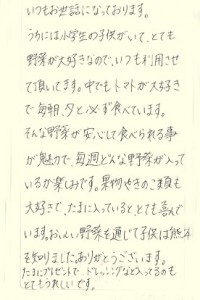 いつもお世話になっております。
うちには小学生の子供がいて、とても
野菜が大好きなので、いつも利用させ
て頂いてます。中でもトマトが大好き
で毎朝、夕と必ず食べています。
そんな野菜が安心して食べられる事
が魅力で、毎週どんな野菜が入って
いるか楽しみです。果物やきのこ類も
大好きで、たまに入っていると、とても喜んで
います。おいしい野菜を通じて子供は熊本
を知りました。ありがとうございます。
たまにプレゼントで、ドレッシングなど入ってるのも
とてもうれしいです。